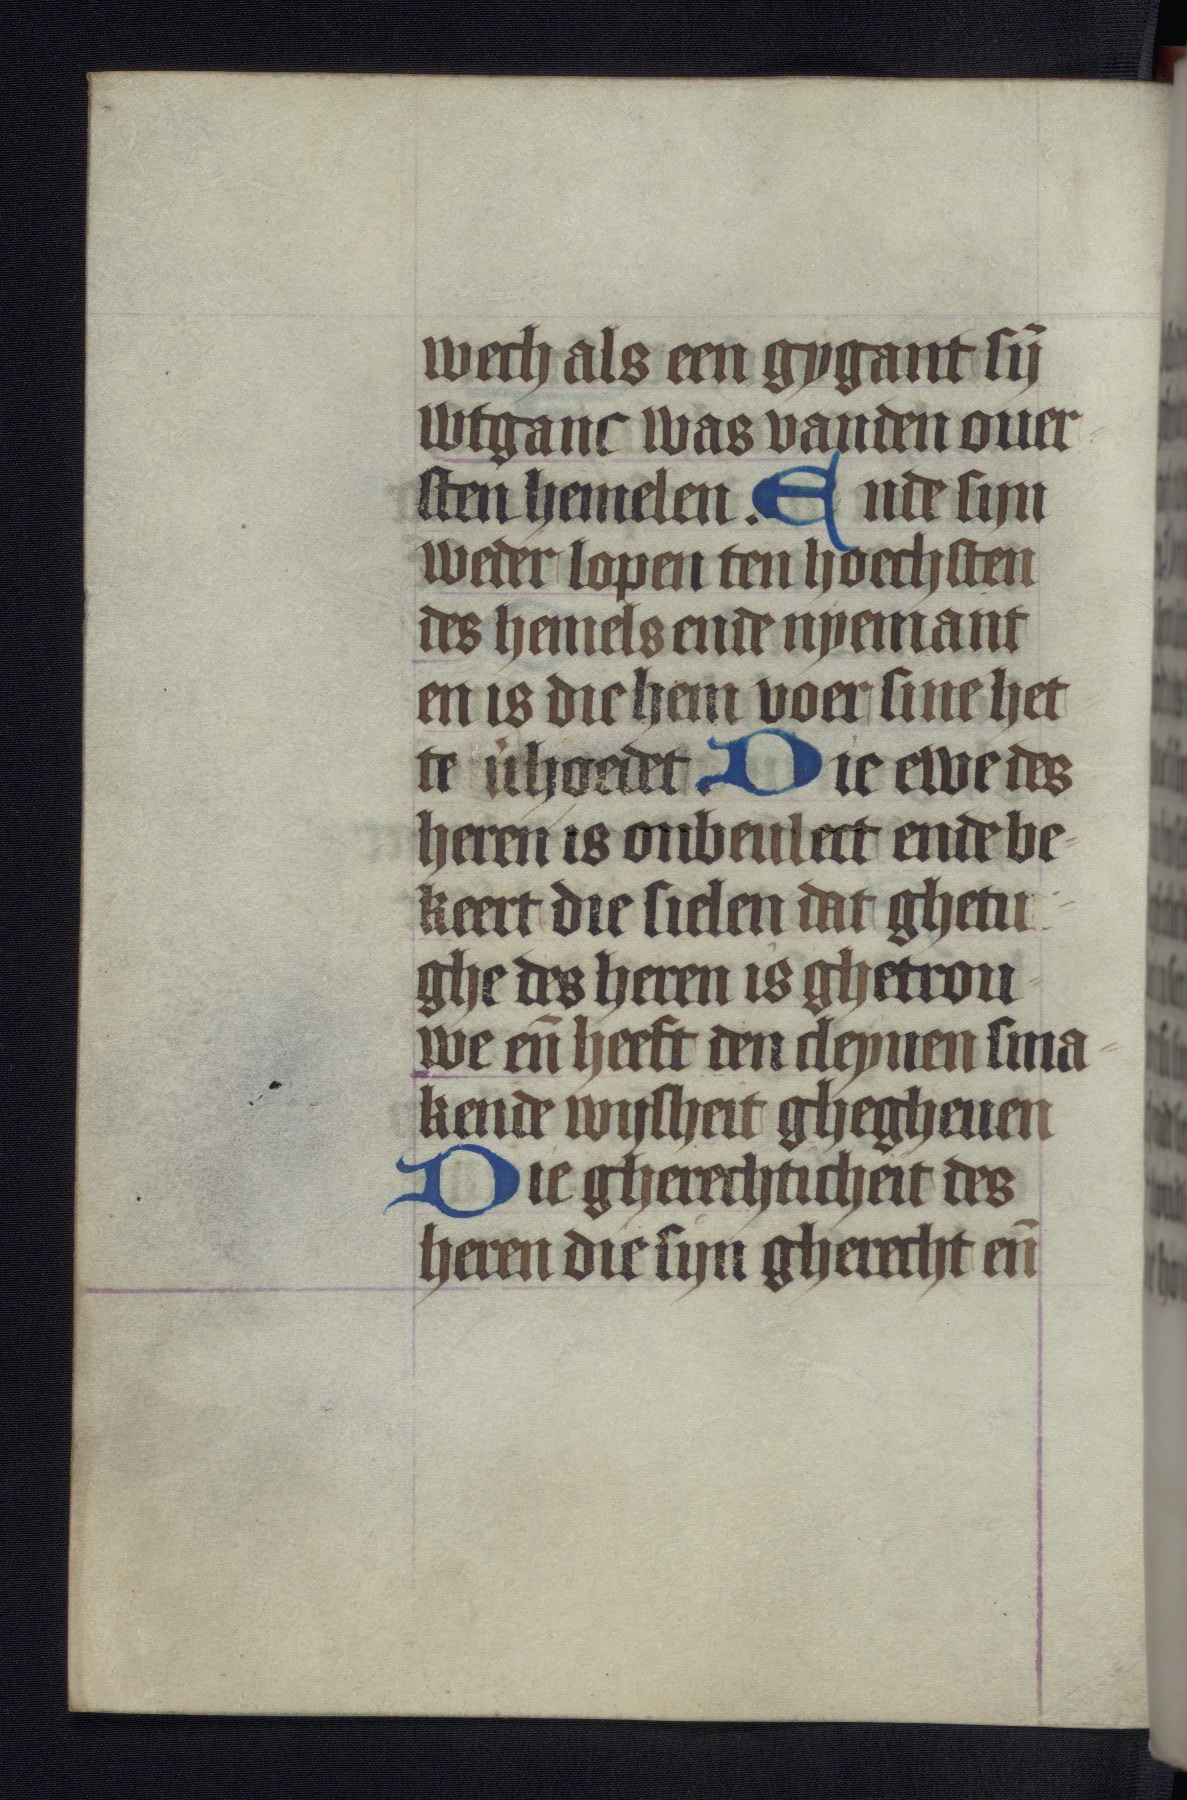 wech als een gygant sij̄
wtganc was vanden ouer
sten hemelen. Ende sijn
weder lopen ten hoechsten
des hemels ende nyemant
en is die hem voer sine het
te v̄hoedet. Die ewe des
heren is onbeulect ende be
keert die sielen dat ghetu
ghe des heren is ghetrou
we en̄ heeft den cleynen sma
kende wijsheit ghegheuen
Die gherechticheit des
heren die sijn gherecht en̄